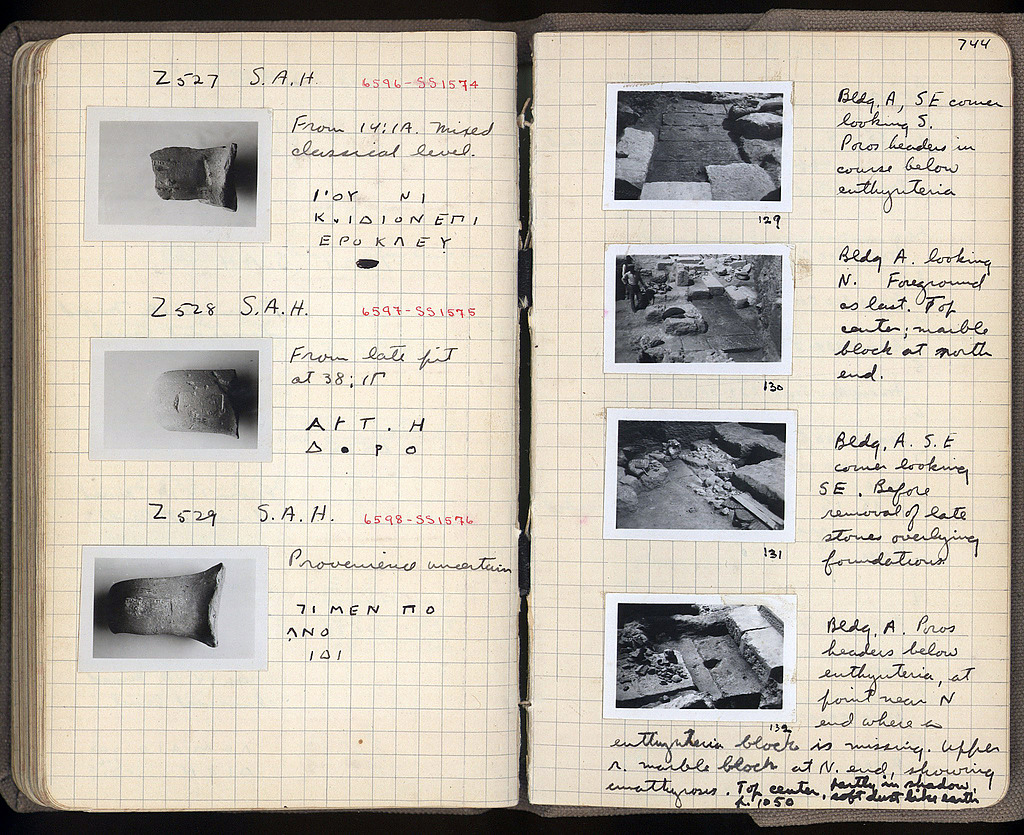 Z 527 S.A.H. 6596-SS1574
From 14:1A. Mixed
classical level.
ΙΟΥ ΝΙ
Κ ΙΔΙΟΝΕΠΙ
ΕΡΟΚΛΕΥ
Z 528 S.A.H. 6597-SS1575
From late pit
at 38;1Γ
Δ Ρ Ο
Z 529 S.A.H. 6598-SS1576
Provenience uncertain
ΜΕΝ ΠΟ
ΛΝΟ
ΙΔΙ
744
Bldg. A, SE corner
looking S.
Poros headers in
course below
euthynteria
129
Bldg A. looking
N. Foreground
as last. Top
center; marble
block at north
end.
130
Bldg. A. S.E
corner looking
SE. Before
removal of late
stones overlying
foundations.
131
Bldg. A. Poros
headers below
euthynteria, at
point near N
end where a
132
euthynteria block is missing. Upper
r. marble block at N. end, showing
anathyrosis. Top center, partly in shadow,
p. 1050 soft dust like earth